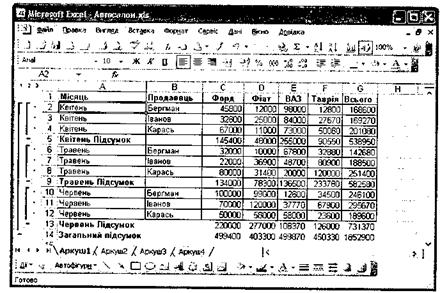 Microsoft Excel - Автосалон.xls
Файл Правка Вигляд Вставка Формат Сервіс Дані Вікно Довідка
100%
Arial 10 Ж К
A2 fx
A B C D E F G H
1 Місяць Продавець Форд Фіат ВАЗ Таврія Всього
2 Квітень Бергман 45800 12000 98000 12800 168600
3 Квітень Іванов 32600 25000 84000 27670 169270
4 Квітень Карась 67000 11000 73000 50080 201080
5 Квітень Підсумок 145400 48000 255000 90550 538950
6 Травень Бергман 32000 10000 67800 32880 142680
7 Травень Іванов 22000 36900 48700 80900 188500
8 Травень Карась 80000 31400 20000 120000 251400
9 Травень Підсумок 134000 78300 136500 233780 582580
10 Червень Бергман 100000 99000 12600 34500 246100
11 Червень Іванов 70000 120000 37770 67900 295670
12 Червень Карась 50000 58000 58000 23600 189600
13 Червень Підсумок 220000 277000 108370 126000 731370
14 Загальний підсумок 499400 403300 499870 450330 1852900
Аркуш1 Аркуш2 Аркуш3 Аркуш4
Автофігури
Готово